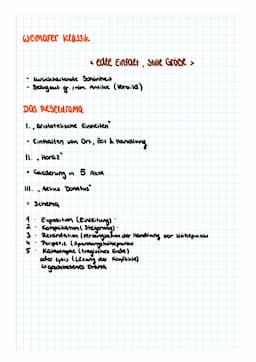 Weimarer Klassik
< edle Einfalt, stille Größe >
- zurückhaltende Schönheit
- Bezug auf gr./röm. Antike (Vorbild)
Das Regeldrama
I. „Aristotelische Einheiten"
- Einhalten von Ort, Zeit & Handlung
II. „Horaz"
- Gliederung in 5 Akte
III. „Aelius Donatus"
- Schema
1 - Exposition (Einleitung)
2 - Komplikation (Steigerung)
3 - Retardation (Verlangsamen der Handlung vor Höhepunkt)
4 - Peripetie (Spannungshöhepunkt)
5 - Katastrophe (tragisches Ende)
oder Lysis (Lösung der Konflikte)
geschlossenes Drama